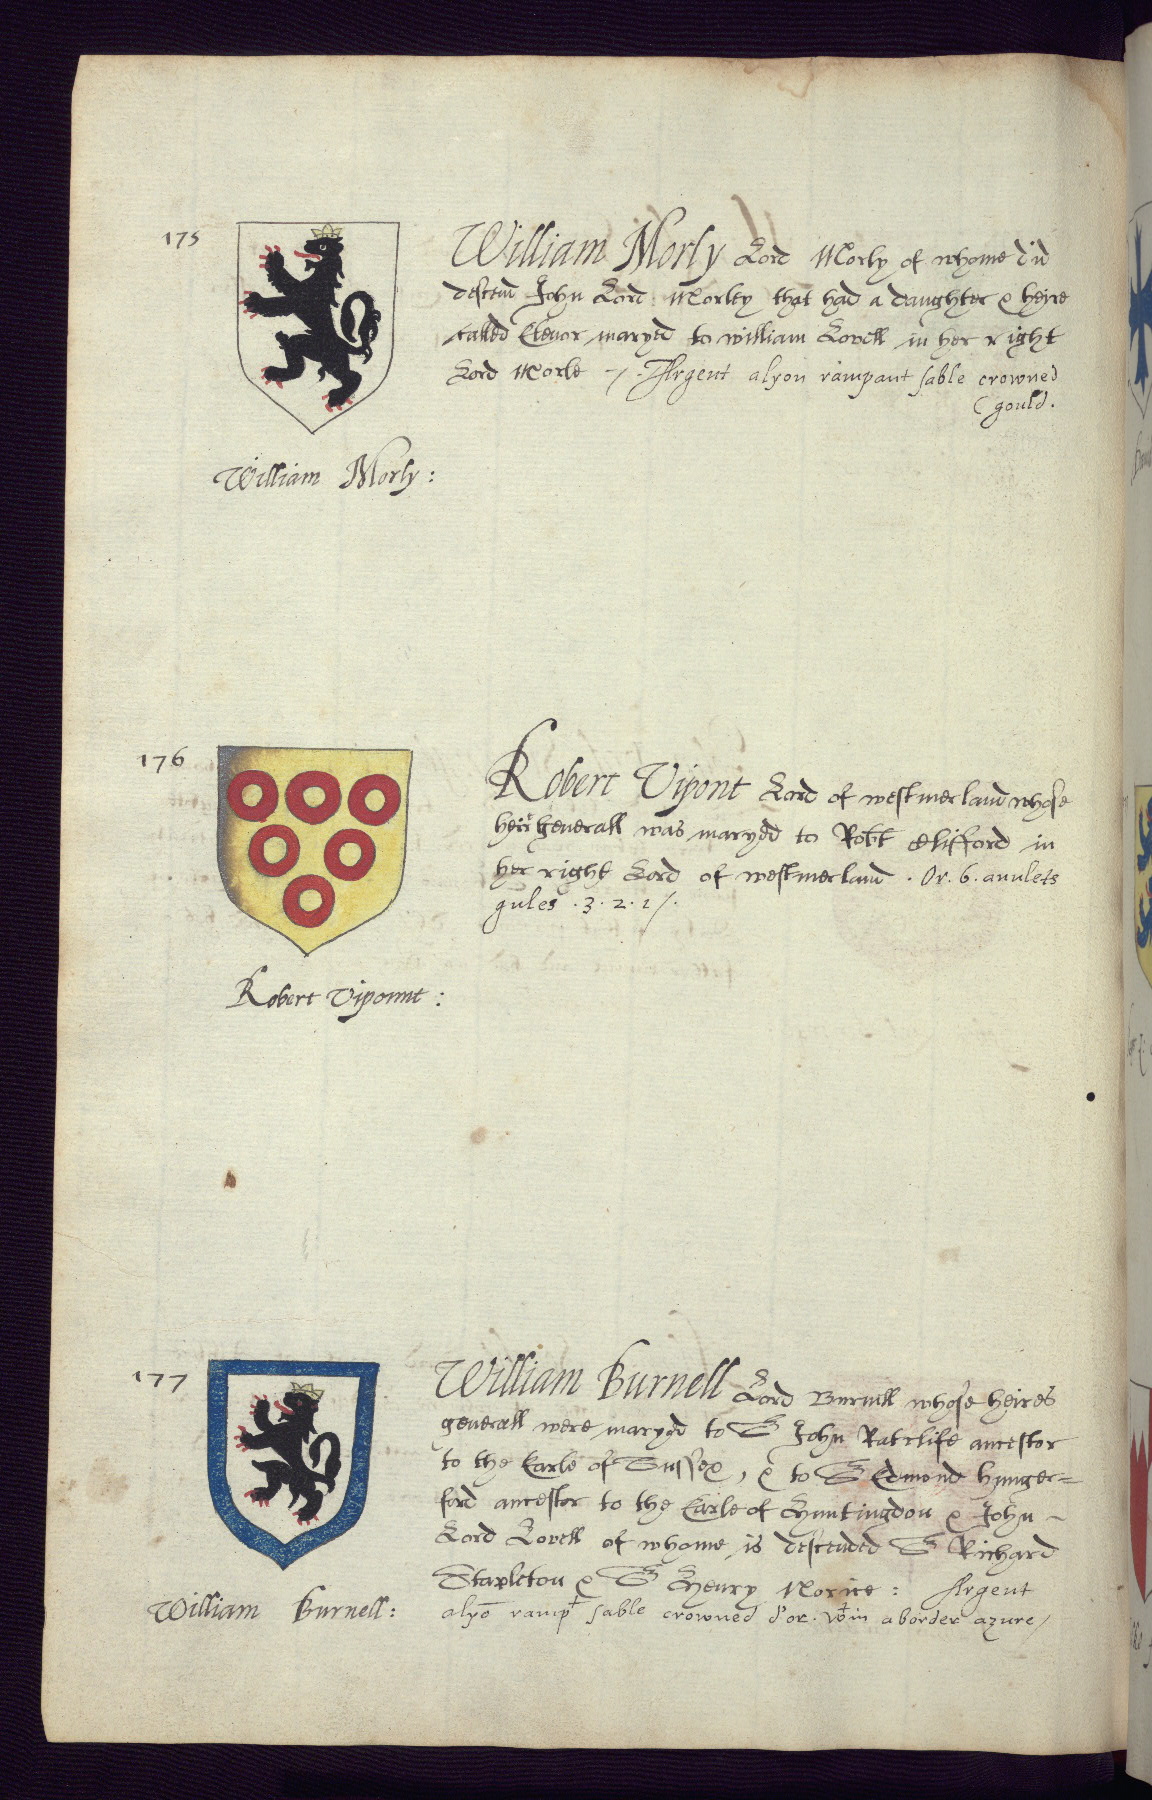 175
William Morly Lord Morly of whome did
descend John Lord Morley that had a daughter & heire
called Elenor maryed to william Lovell in her right
Lord Morle -/. Argent a lyon rampant sable crowned
(gould.
William Morly:
176
Robert Vipont Lord of westmerland whose
heire generall was maryed to Robt Clifford in
her right Lord of westmerland . Or. 6. anulets
gules .3.2.1/.
Robert Viponnt:
177
William Burnell Lord Burnell whose heires
generall were maryed to Sr John Ratclife ancestor
to the Earle of Sussex, & to Sr Edmond hunger=
ford ancestor to the Earle of Huntingdon & John -
Lord Lovell of whome is descended Sr Richard
Stapleton & Sr Henry Norice: Argent
a lyō rampt sable crowned d'or. wtin a border azure/
William Burnell: